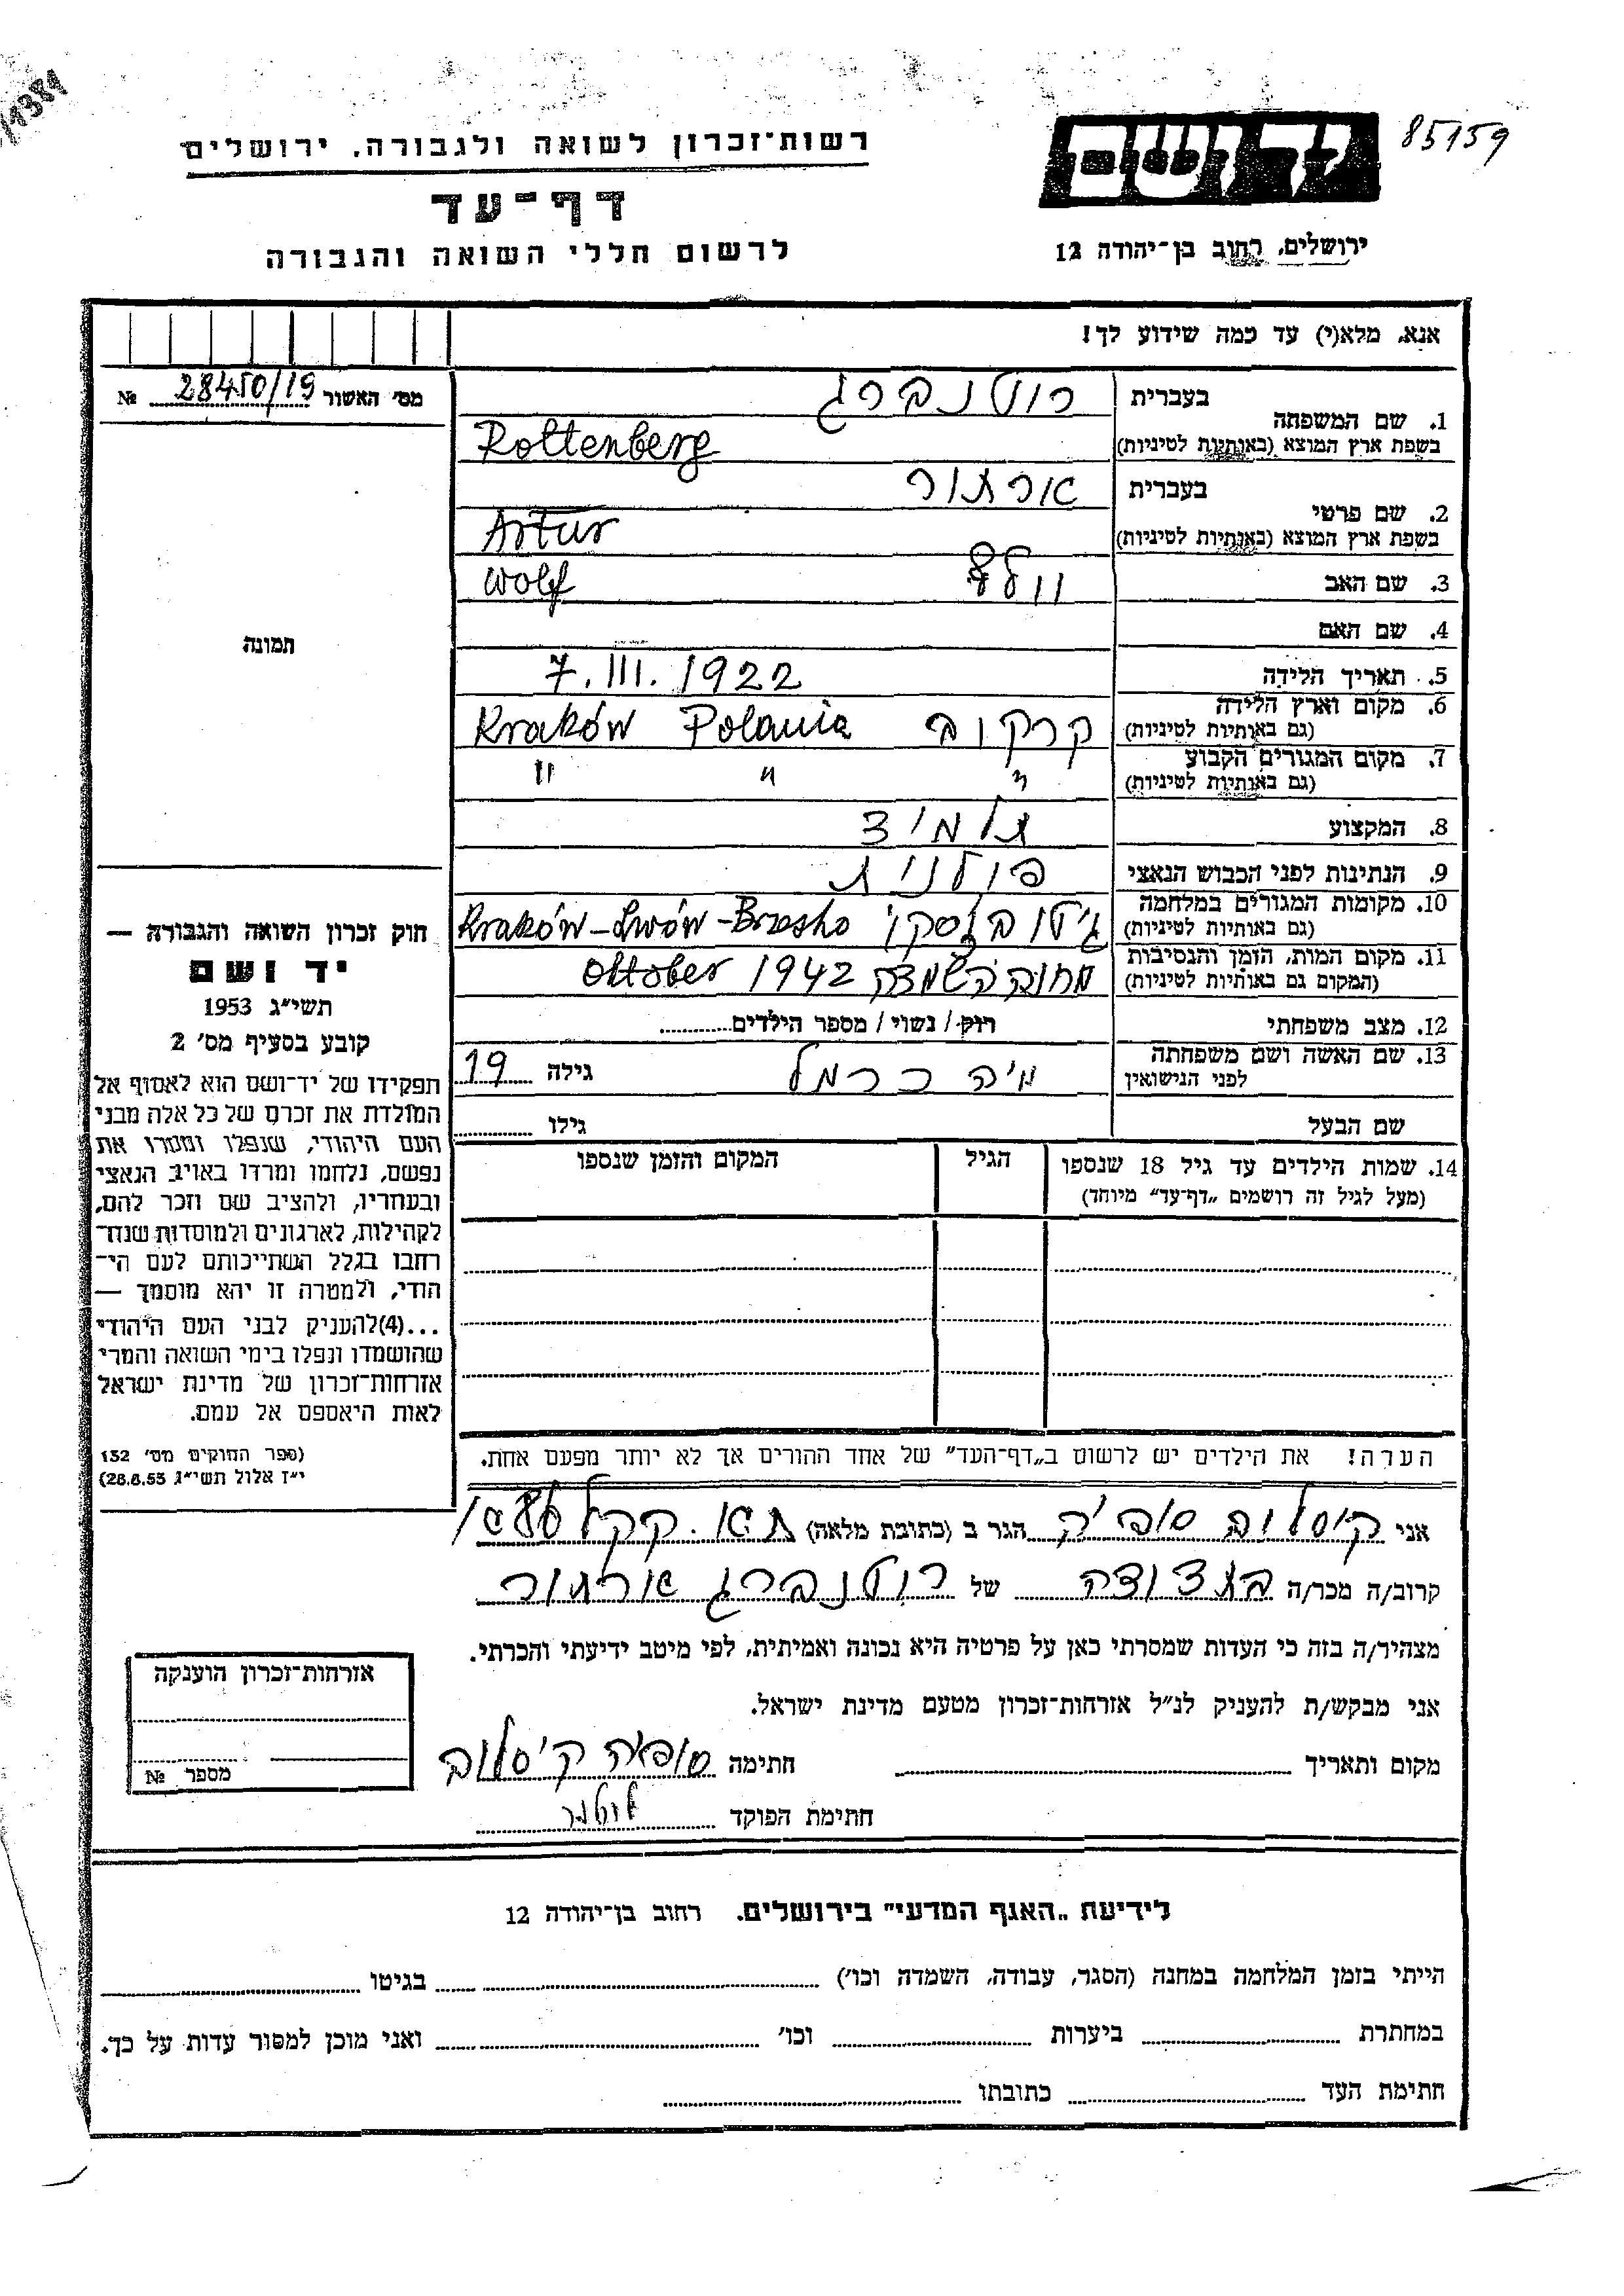 85159
רשות־זכרון לשואה ולגבורה, ירושלים
דף־עד
לרשום חללי השואה והגבורה
יד ושם
ירושלים, רחוב בן־יהודה 12
אנא, מלא(י) עד כמה שידוע לך!
מס׳ האשור № 28450/19
1. שם המשפחה בעברית רוטנברג
בשפת ארץ המוצא (באותיות לטיניות) Rottenberg
2. שם פרטי בעברית ארתור
בשפת ארץ המוצא (באותיות לטיניות) Artur
3. שם האב וולף Wolf
4. שם האם
5. תאריך הלידה 7. III. 1922
6. מקום וארץ הלידה קרקוב Kraków Polania
(גם באותיות לטיניות)
7. מקום המגורים הקבוע " " "
(גם באותיות לטיניות)
8. המקצוע תלמיד
9. הנתינות לפני הכבוש הנאצי פולנית
10. מקומות המגורים במלחמה גיטו Kraków-Lwów-Brzesko
(גם באותיות לטיניות)
11. מקום המות, הזמן והנסיבות מחנה השמדה Oktober 1942
(המקום גם באותיות לטיניות)
12. מצב משפחתי רוק / נשוי / מספר הילדים
13. שם האשה ושם משפחתה מיה כרמל גילה 19
לפני הנישואין
שם הבעל גילו
14. שמות הילדים עד גיל 18 שנספו הגיל המקום והזמן שנספו
(מעל לגיל זה רושמים „דף־עד״ מיוחד)
הערה! את הילדים יש לרשום ב„דף־העד״ של אחד ההורים אך לא יותר מפעם אחת.
תמונה
חוק זכרון השואה והגבורה —
יד ושם
תשי״ג 1953
קובע בסעיף מס׳ 2
תפקידו של יד־ושם הוא לאסוף אל
המולדת את זכרם של כל אלה מבני
העם היהודי, שנפלו ומסרו את
נפשם, נלחמו ומרדו באויב הנאצי
ובעוזריו, ולהציב שם וזכר להם,
לקהילות, לארגונים ולמוסדות שנח־
רבו בגלל השתייכותם לעם הי־
הודי, ולמטרה זו יהא מוסמך —
...(4)להעניק לבני העם היהודי
שהושמדו ונפלו בימי השואה והמרי
אזרחות־זכרון של מדינת ישראל
לאות היאספם אל עמם.
(ספר החוקים מס׳ 132
י״ז אלול תשי״ג 28.8.53)
אני קיסלוב הגר ב (כתובת מלאה)
קרוב/ה מכר/ה בת דודה של רוטנברג ארתור
מצהיר/ה בזה כי העדות שמסרתי כאן על פרטיה היא נכונה ואמיתית, לפי מיטב ידיעתי והכרתי.
אני מבקש/ת להעניק לנ״ל אזרחות־זכרון מטעם מדינת ישראל.
מקום ותאריך חתימה סופיה קיסלוב
חתימת הפוקד
אזרחות־זכרון הוענקה
מספר №
לידיעת „האגף המדעי״ בירושלים. רחוב בן־יהודה 12
הייתי בזמן המלחמה במחנה (הסגר, עבודה, השמדה וכו׳) בגיטו
במחתרת ביערות וכו׳ ואני מוכן למסור עדות על כך.
חתימת העד כתובתו